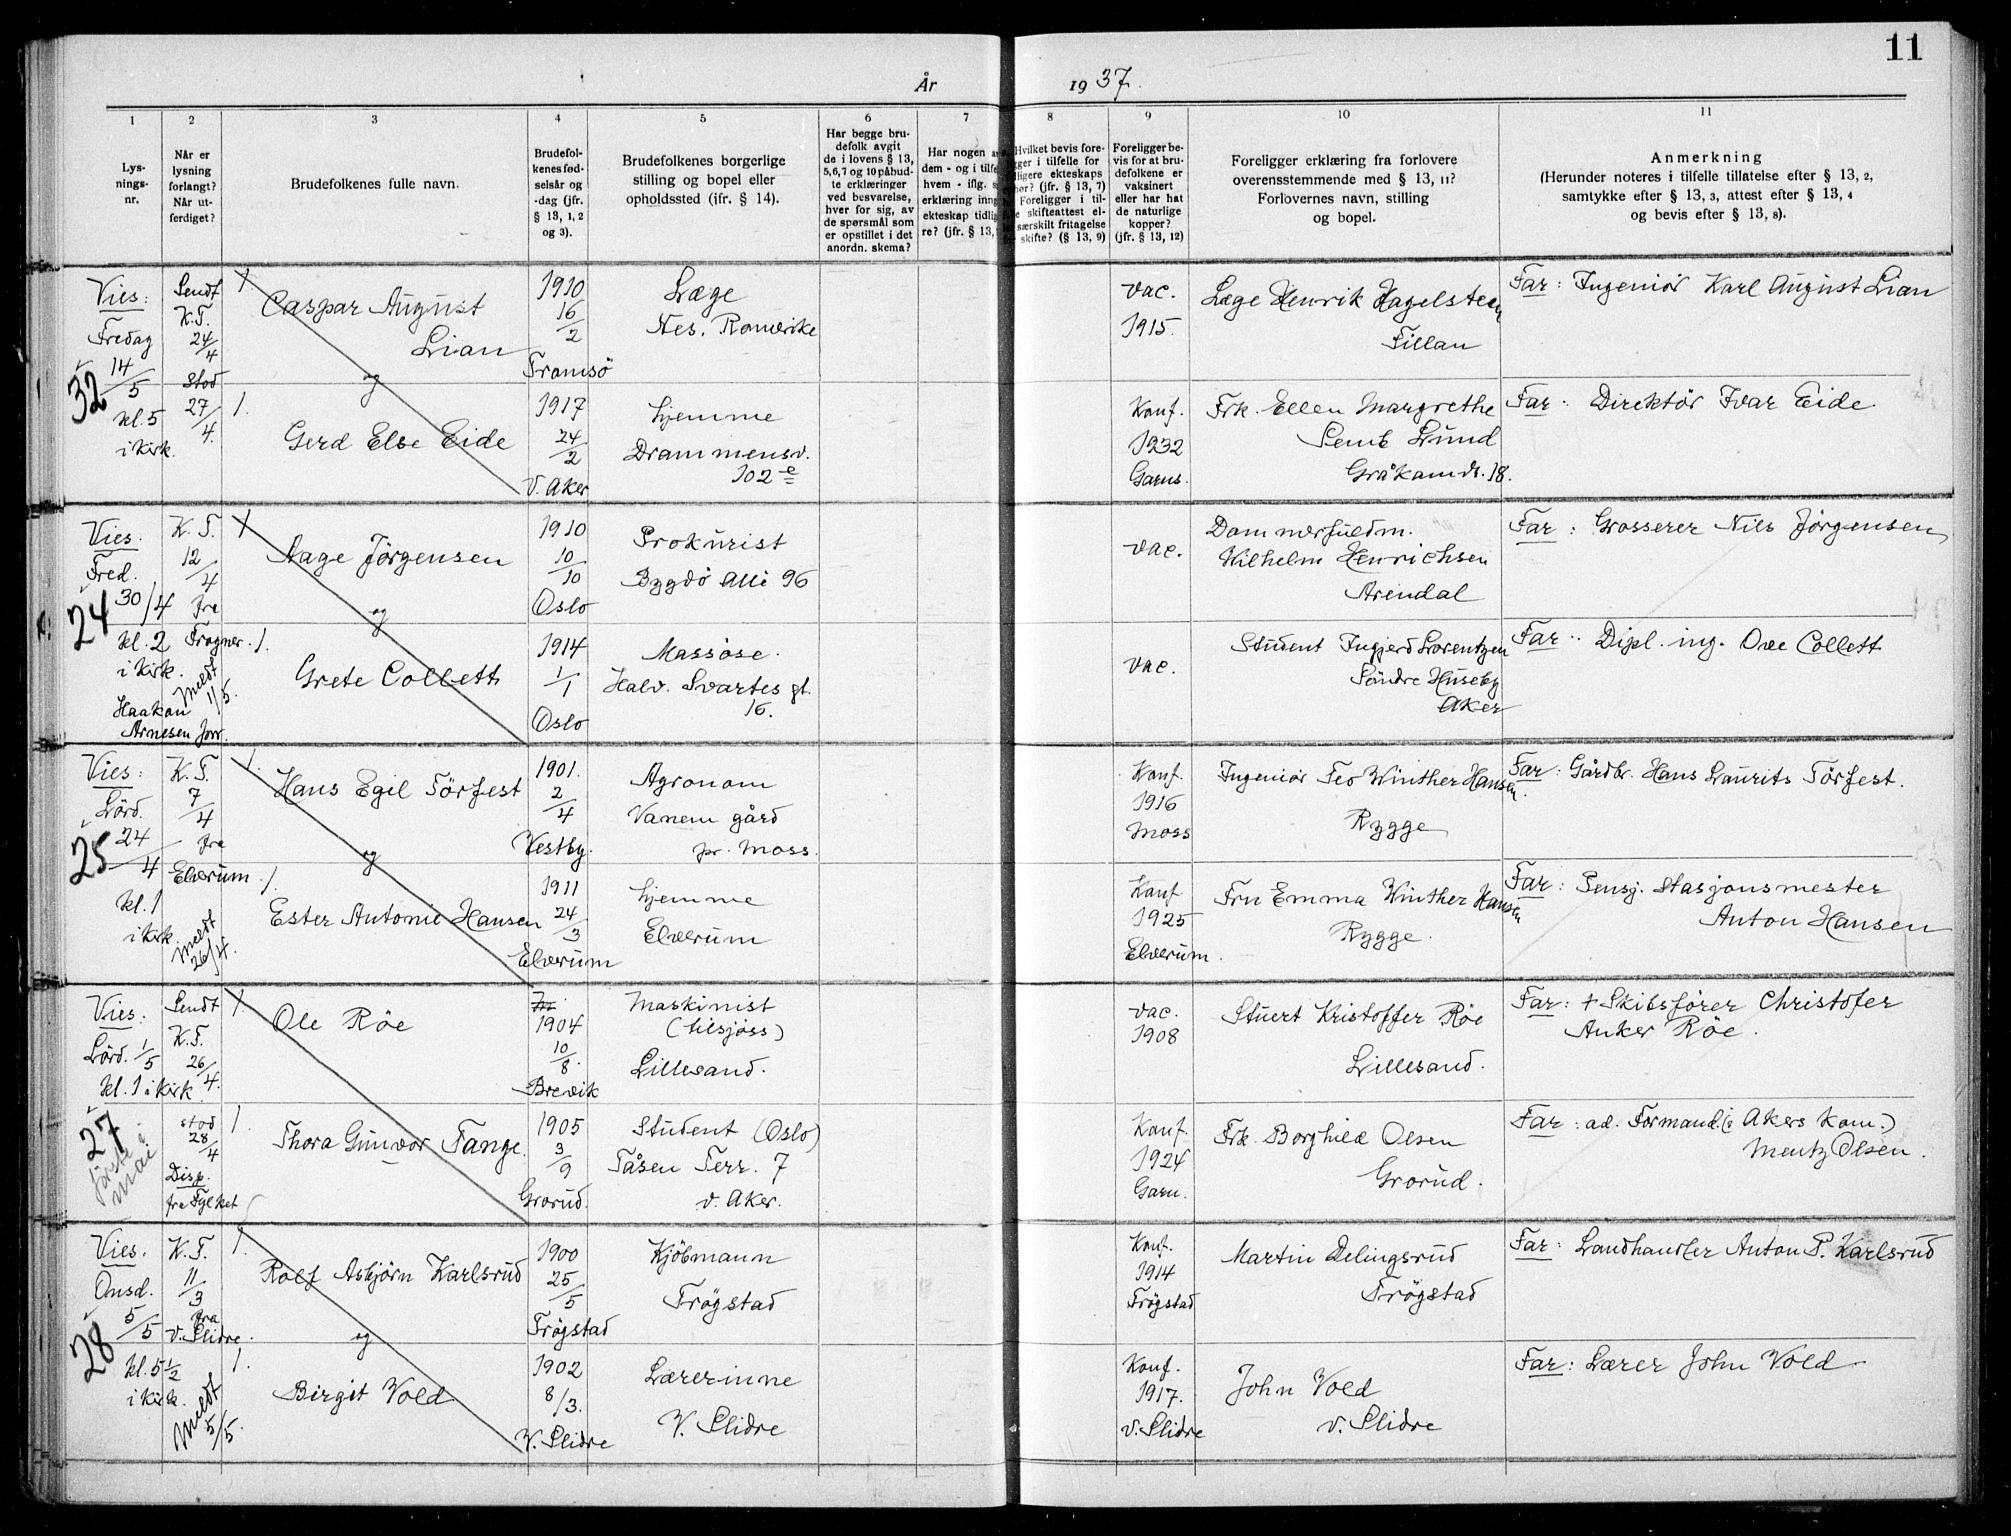 11
År 1937.
1 2 3 4 5 6 7 8 9 10 11
Lys-
nings-
nr.
Når er
lysning
forlangt?
Når ut-
ferdiget?
Brudefolkenes fulle navn.
Brudefol-
kenes fød-
selsår og
-dag (jfr.
§ 13, 1, 2
og 3).
Brudefolkenes borgerlige
stilling og bopel eller
opholdssted (jfr. § 14).
Har begge bru-
defolk avgit
de i lovens § 13,
5, 6, 7 og 10 påbud-
te erklæringer
ved besvarelse,
hver for sig, av
de spørsmål som
er opstillet i det
anordn. skema?
Har nogen
dem - og i tilf
hvem - iflg.
erklæring inng
ekteskap tidli
re? (jfr. § 13,
Hvilket bevis fore-
gger i tilfelle for
ligere ekteskaps
hør? (jfr. § 13, 7)
Foreligger i til-
skifteattest el-
særskilt fritagelse
skifte? (§ 13, 9)
Foreligger be-
vis for at bru-
defolkene er
vaksinert
eller har hat
de naturlige
kopper?
(jfr. § 13, 12)
Foreligger erklæring fra forlovere
overensstemmende med § 13, 11?
Forlovernes navn, stilling
og bopel.
Anmerkning
(Herunder noteres i tilfelle tillatelse efter § 13, 2,
samtykke efter § 13, 3, attest efter § 13, 4
og bevis efter § 13, 8).
Vies:
Fredag
14/5
32
kl. 5
i Kirk.
Sendt
K.T.
24/4
Stod
27/4.
1
Caspar August
Lian
og
1.
Gerd Else Eide
1910
16/2
Tromsö
1917
24/2
V. Aker
Læge
Nes, Romerike
hjemme
Drammensv.
102 e
vac.
1915.
Konf.
1932
Garns.
Læge Henrik Hagelsteen
Fillan
Frk. Ellen Margrethe
Semb Lund
Gråkamv. 18.
Far: Ingeniör Karl August Lian
Far: Direktör Ivar Eide
Vies.
Fred.
30/4
24
kl. 2
i Kirk.
Haakon
Arnesen Jnr.
K.T.
12/4
fra
Frogner.
Meldt
11/5.
1
Aage Jörgensen
og
1.
Grete Collett
1910
10/10
Oslo
1914
1/1
Oslo
Prokurist
Bygdö Allé 96
Massöse.
Halv. Svartes gt.
16.
vac.
vac.
Dommerfuldm.
Wilhelm Henrichsen
Arendal
Student Ingjerd Lorentzen
Söndre Huseby
Aker
Far: Grosserer Nils Jörgensen
Far: Dipl. ing. Ove Collett
Vies:
Lörd.
24/4
25
kl. 1
i Kirk.
K.T.
7/4
fra
Elverum.
Meldt
26/4.
1.
Hans Egil Törfest
og
1.
Ester Antonie Hansen
1901.
2/4
Vestby.
1911
24/3
Elverum
Agronom
Vanem gård
pr. Moss.
hjemme
Elverum
Konf.
1916
Moss
Konf
1925
Elverum.
Ingeniör Teo Winther Hansen.
Rygge
Fru Emma Winther Hansen
Rygge.
Far: Gårdbr. Hans Laurits Törfest.
Far: Pensj. Stasjonsmester
Anton Hansen
Vies:
Lörd. 1/5
kl. 1 i Kirk
27
förste
mai
Sendt
K.T.
26/4.
stod
28/4
Disp.
fra Fylket
1.
Ole Röe
1.
Thora Gunvor Tange.
1904
10/8.
Brevik
1905
3/9
Grorud.
Maskinist
(tilsjöss)
Lillesand.
Student (Oslo)
Tåsen Terr. 7
v. Aker.
vac.
1908
Konf.
1924
Garn.
Stuert Kristoffer Röe
Lillesand.
Frk. Borghild Olsen
Grorud.
Far: + Skibsförer Christofer
Anker Röe.
Far: ad. Formand. (i Akers Kom.)
Mentz Olsen.
Vies.
Onsd.
5/5
28
kl. 5 1/2
i Kirk.
K.T.
11/3
fra
V. Slidre.
Meldt
5/5.
1.
Rolf Asbjörn Karlsrud
og
1.
Birgit Vold
1900
25/5
Trögstad
1902
8/3.
V. Slidre
Kjöbmann
Trögstad
Lærerinne
V. Slidre
Konf.
1914
Trögstad
Konf.
1917.
v. Slidre
Martin Delingsrud
Trögstad
John Vold
v. Slidre
Far: Landhandler Anton P. Karlsrud
Far: Lærer John Vold